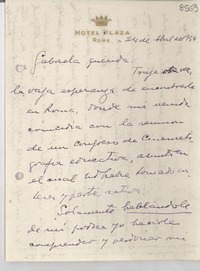 8563
HOTEL PLAZA
ROMA
24 de Abril de 1954
Gabriela querida:
Traje otra vez,
la vaga esperanza de encontrarla
en Roma, donde mi venida
coincidía con la reunion
de un congreso de Cinemato-
grafia educativa, asunto en
el cual Ud habia tomado in-
teres y parte activa.
Solamente hablándole
de mi podria yo hacerla
comprender y perdonar mi